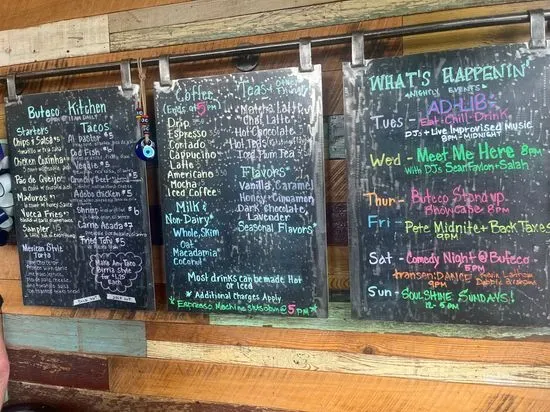 Buteco Kitchen
Starters
Chips & Salsa $5
Chicken Coxinha
Pao de Queijo
Maduros
Yucca Fries
Sampler
Mexican Style
Torta
Tacos
Al Pastor $5
Cod Fish
Veggie $5
Crunchy Beef
Adobo Chicken $5
Shrimp
Carne Asada $7
Fried Tofu $5
Make Any Taco
Birria Style
for $1.25
Each
Coffee
(Ends at 5pm)
Drip
Espresso
Cortado
Cappucino
Latte
Americano
Mocha
Iced Coffee
Milk &
Non-Dairy*
Whole, Skim
Oat
Macadamia
Coconut
Teas &
Other
Things
Matcha Latte
Chai Latte
Hot Chocolate
Hot Teas
Iced Pum Tea
Flavors*
Vanilla, Caramel
Honey + Cinnamon
Dark Chocolate
Lavender
Seasonal Flavors*
Most drinks can be made Hot
or Iced
* Additional Charges Apply
* Espresso Machine Shuts down @ 5pm *
What's Happenin'
Nightly Events
AD-LIB
Tues - Eat·Chill·Drink
DJs + Live Improvised Music
8pm-Midnight
Wed - Meet Me Here 8pm
with DJs Sean Faylon + Salah
Thur - Buteco Stand up
Showcase 8pm
Fri - Pete Midnite + Back Taxes
9pm
Sat - Comedy Night @ Buteco
5pm
transcenDANCE
9pm
Sun - SoulShine Sundays!
12-5pm